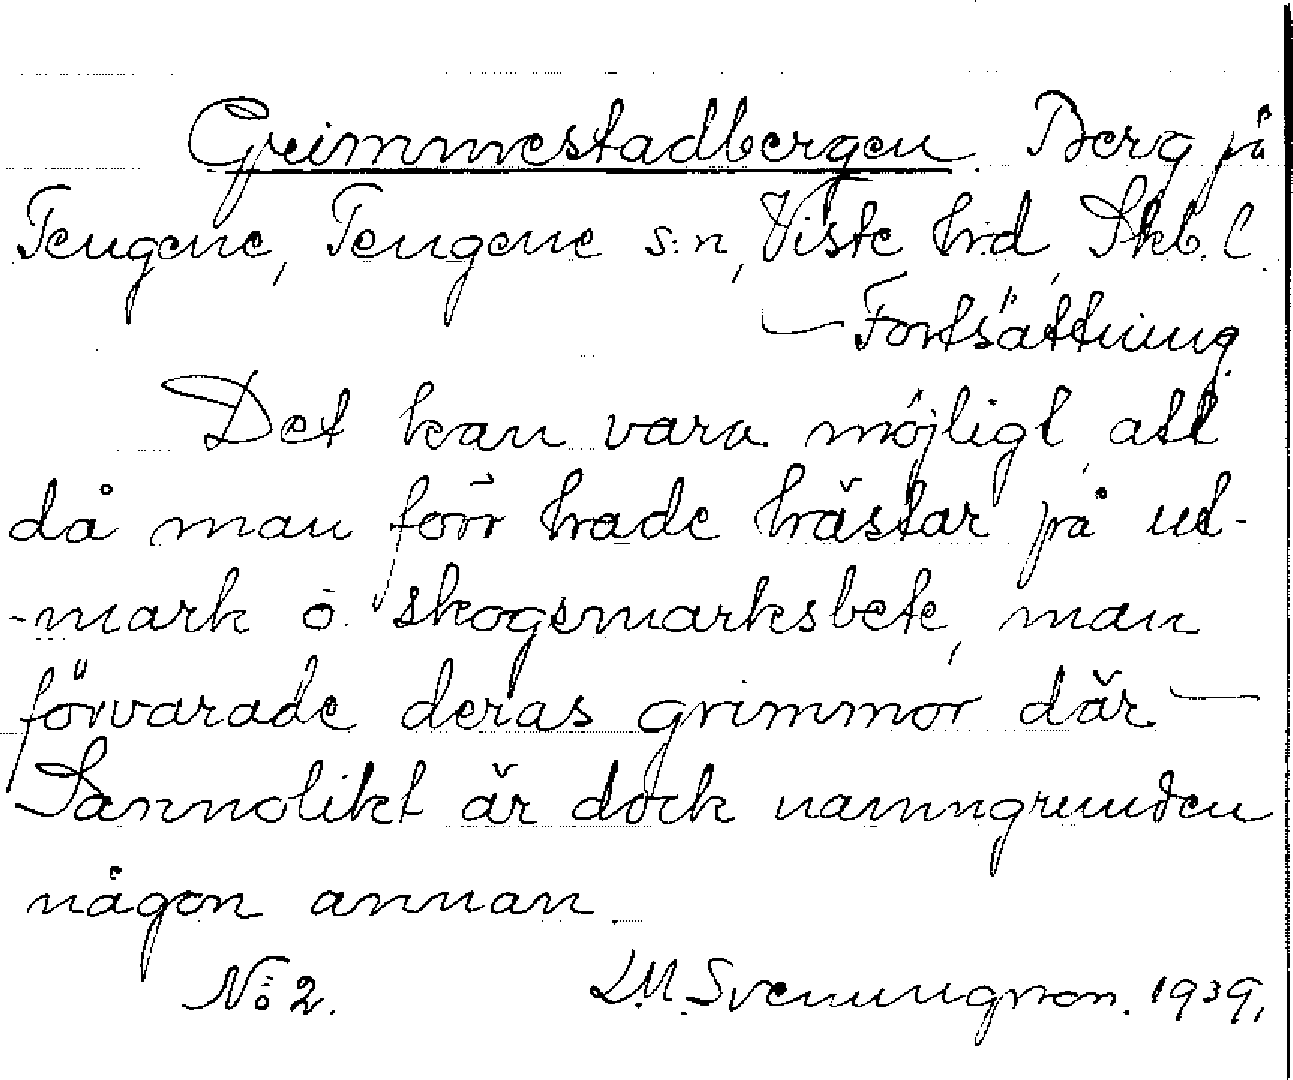 Grimmestadbergen. Berg på
Tengene, Tengene s:n, Viste hrd, Skb. l.
— Fortsättning
Det kan vara möjligt, att
då man förr hade hästar på ut-
-mark o. skogsmarksbete, man
förvarade deras grimmor där —
Sannolikt är dock namngrunden
någon annan.
No 2. L.M. Svenungson. 1939,